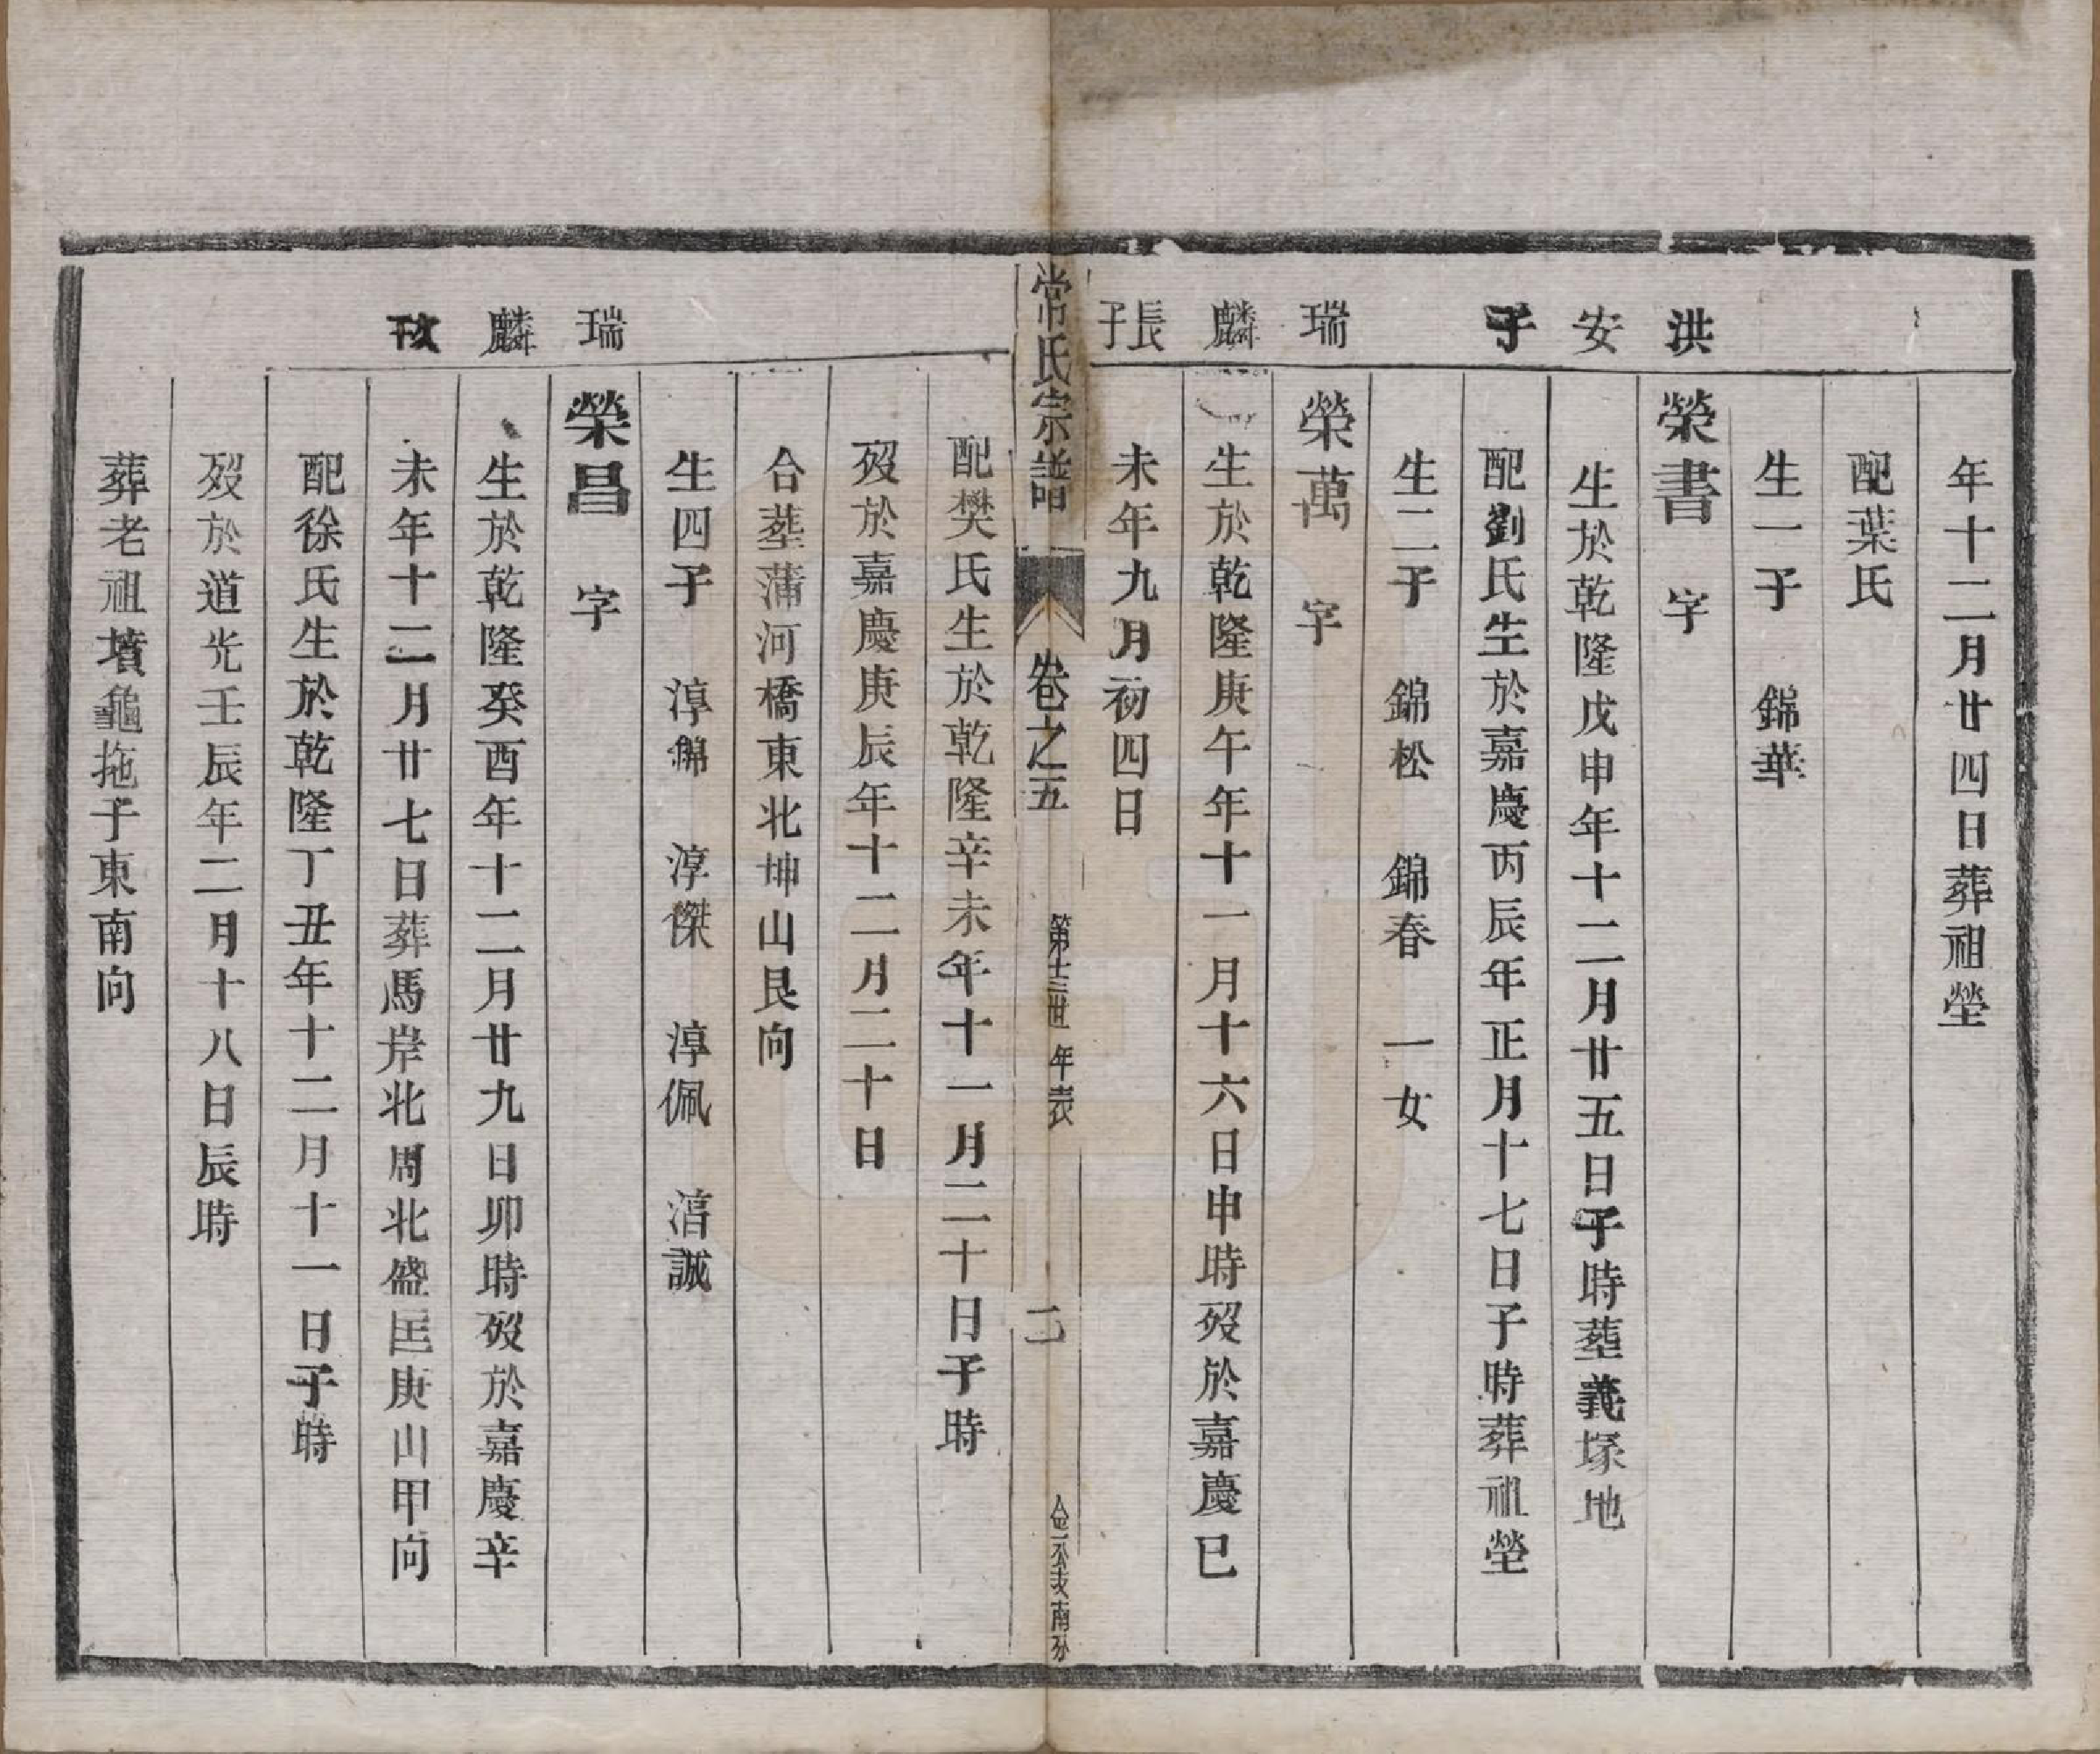 年十二月廿四日葬祖塋
配葉氏
生一子　錦華
洪安子
榮書　字
生於乾隆戊申年十二月廿五日子時塟義塚地
配劉氏生於嘉慶丙辰年正月十七日子時葬祖塋
生二子　錦松　錦春　一女
瑞麟長子
榮萬　字
生於乾隆庚午年十一月十六日申時歿於嘉慶已
未年九月初四日
常氏宗譜　卷之五　第十三世　年表　二　公支南分
配樊氏生於乾隆辛未年十一月二十日子時
歿於嘉慶庚辰年十二月二十日
合塟蒲河橋東北坤山艮向
生四子　淳錦　淳傑　淳佩　淯誠
瑞麟次子
榮昌　字
生於乾隆癸酉年十二月廿九日卯時歿於嘉慶辛
未年十二月廿七日葬馬岸北周北盛匡庚山甲向
配徐氏生於乾隆丁丑年十二月十一日子時
歿於道光壬辰年二月十八日辰時
葬老祖墳龜拖子東南向